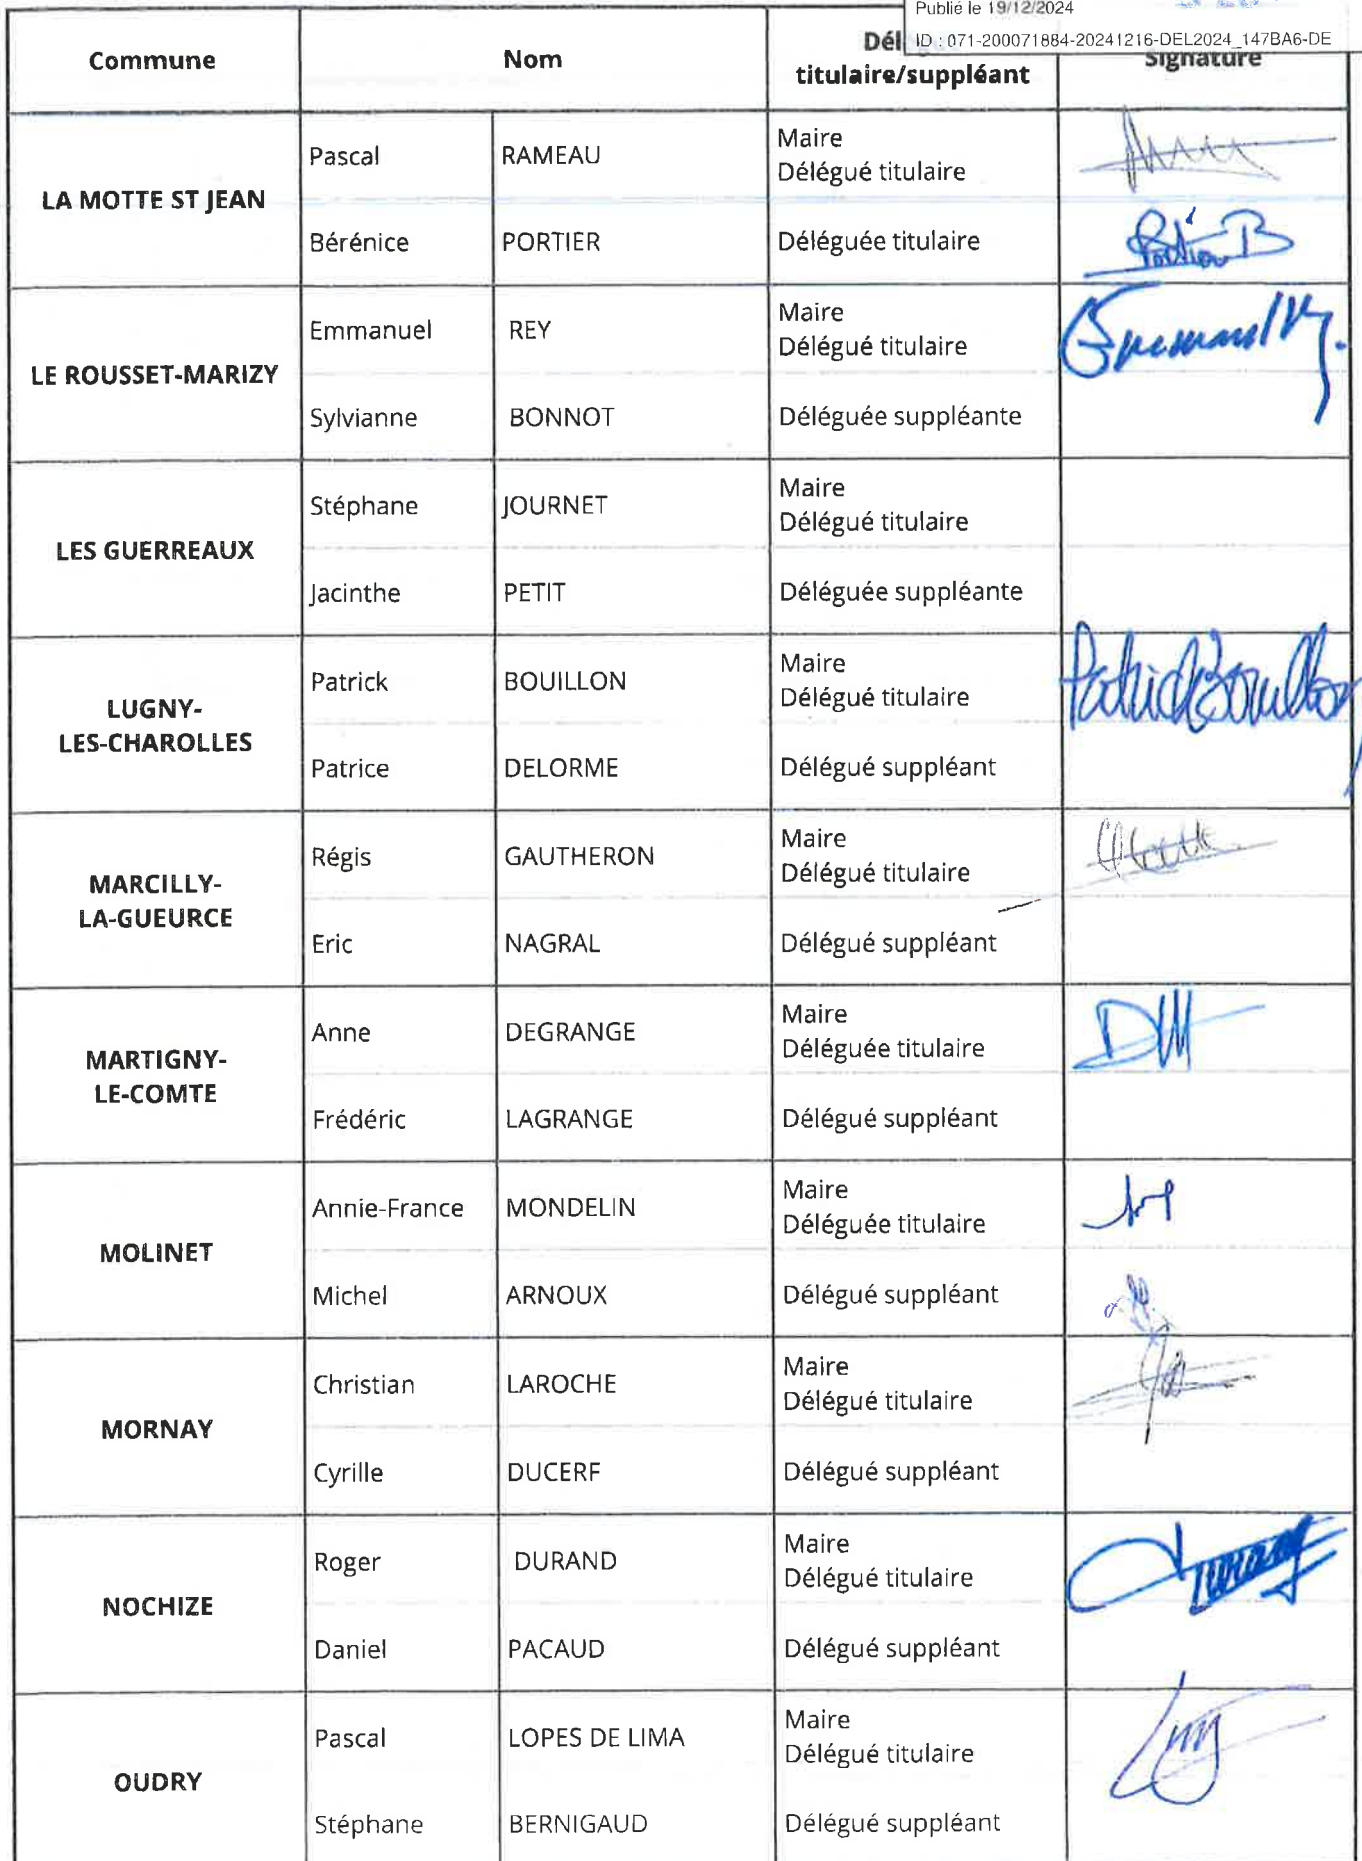 Publié le 19/12/2024
ID : 071-200071884-20241216-DEL2024_147BA6-DE
Commune Nom Dél
titulaire/suppléant Signature
LA MOTTE ST JEAN
Pascal RAMEAU Maire
Délégué titulaire
Bérénice PORTIER Déléguée titulaire
Portier B
LE ROUSSET-MARIZY
Emmanuel REY Maire
Délégué titulaire
Sylvianne BONNOT Déléguée suppléante
LES GUERREAUX
Stéphane JOURNET Maire
Délégué titulaire
Jacinthe PETIT Déléguée suppléante
LUGNY-
LES-CHAROLLES
Patrick BOUILLON Maire
Délégué titulaire
Patrick Bouillon
Patrice DELORME Délégué suppléant
MARCILLY-
LA-GUEURCE
Régis GAUTHERON Maire
Délégué titulaire
Eric NAGRAL Délégué suppléant
MARTIGNY-
LE-COMTE
Anne DEGRANGE Maire
Déléguée titulaire
Frédéric LAGRANGE Délégué suppléant
MOLINET
Annie-France MONDELIN Maire
Déléguée titulaire
Michel ARNOUX Délégué suppléant
MORNAY
Christian LAROCHE Maire
Délégué titulaire
Cyrille DUCERF Délégué suppléant
NOCHIZE
Roger DURAND Maire
Délégué titulaire
Daniel PACAUD Délégué suppléant
OUDRY
Pascal LOPES DE LIMA Maire
Délégué titulaire
Stéphane BERNIGAUD Délégué suppléant